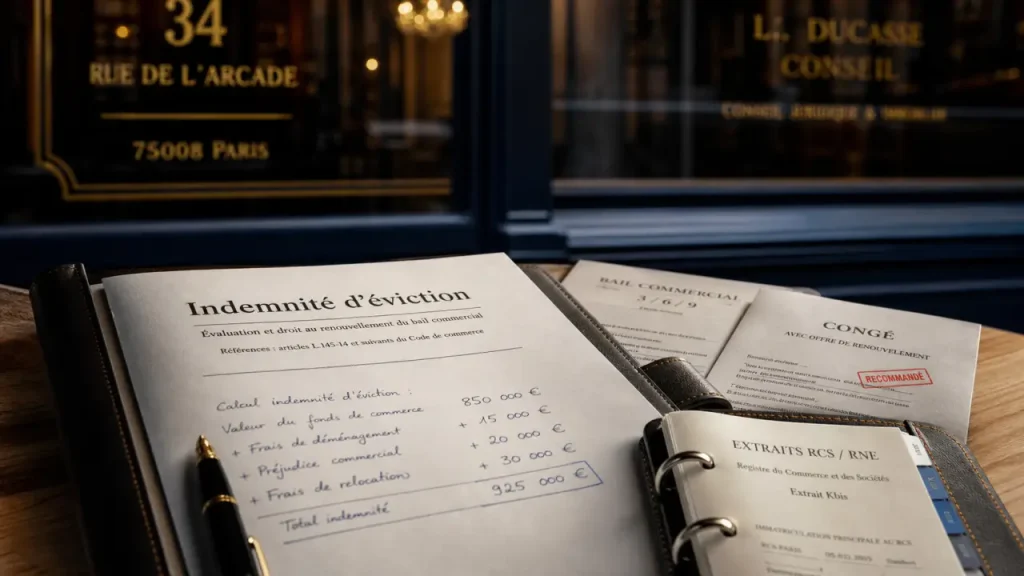 34
RUE DE L'ARCADE
75008 PARIS
L. DUCASSE
CONSEIL
Indemnité d'éviction
Évaluation et droit au renouvellement du bail commercial
Références : articles L.145-14 et suivants du Code de commerce
Calcul indemnité d'éviction :
Valeur du fonds de commerce 850 000 €
+ Frais de déménagement + 15 000 €
+ Préjudice commercial + 20 000 €
+ Frais de relocation + 30 000 €
Total indemnité 925 000 €
BAIL COMMERCIAL
3 / 6 / 9
CONGÉ
AVEC OFFRE DE RENOUVELLEMENT
RECOMMANDÉ
EXTRAITS RCS / RNE
Registre du Commerce et des Sociétés
Extrait Kbis
IMMATRICULATION PRINCIPALE AU RCS
RCS PARIS